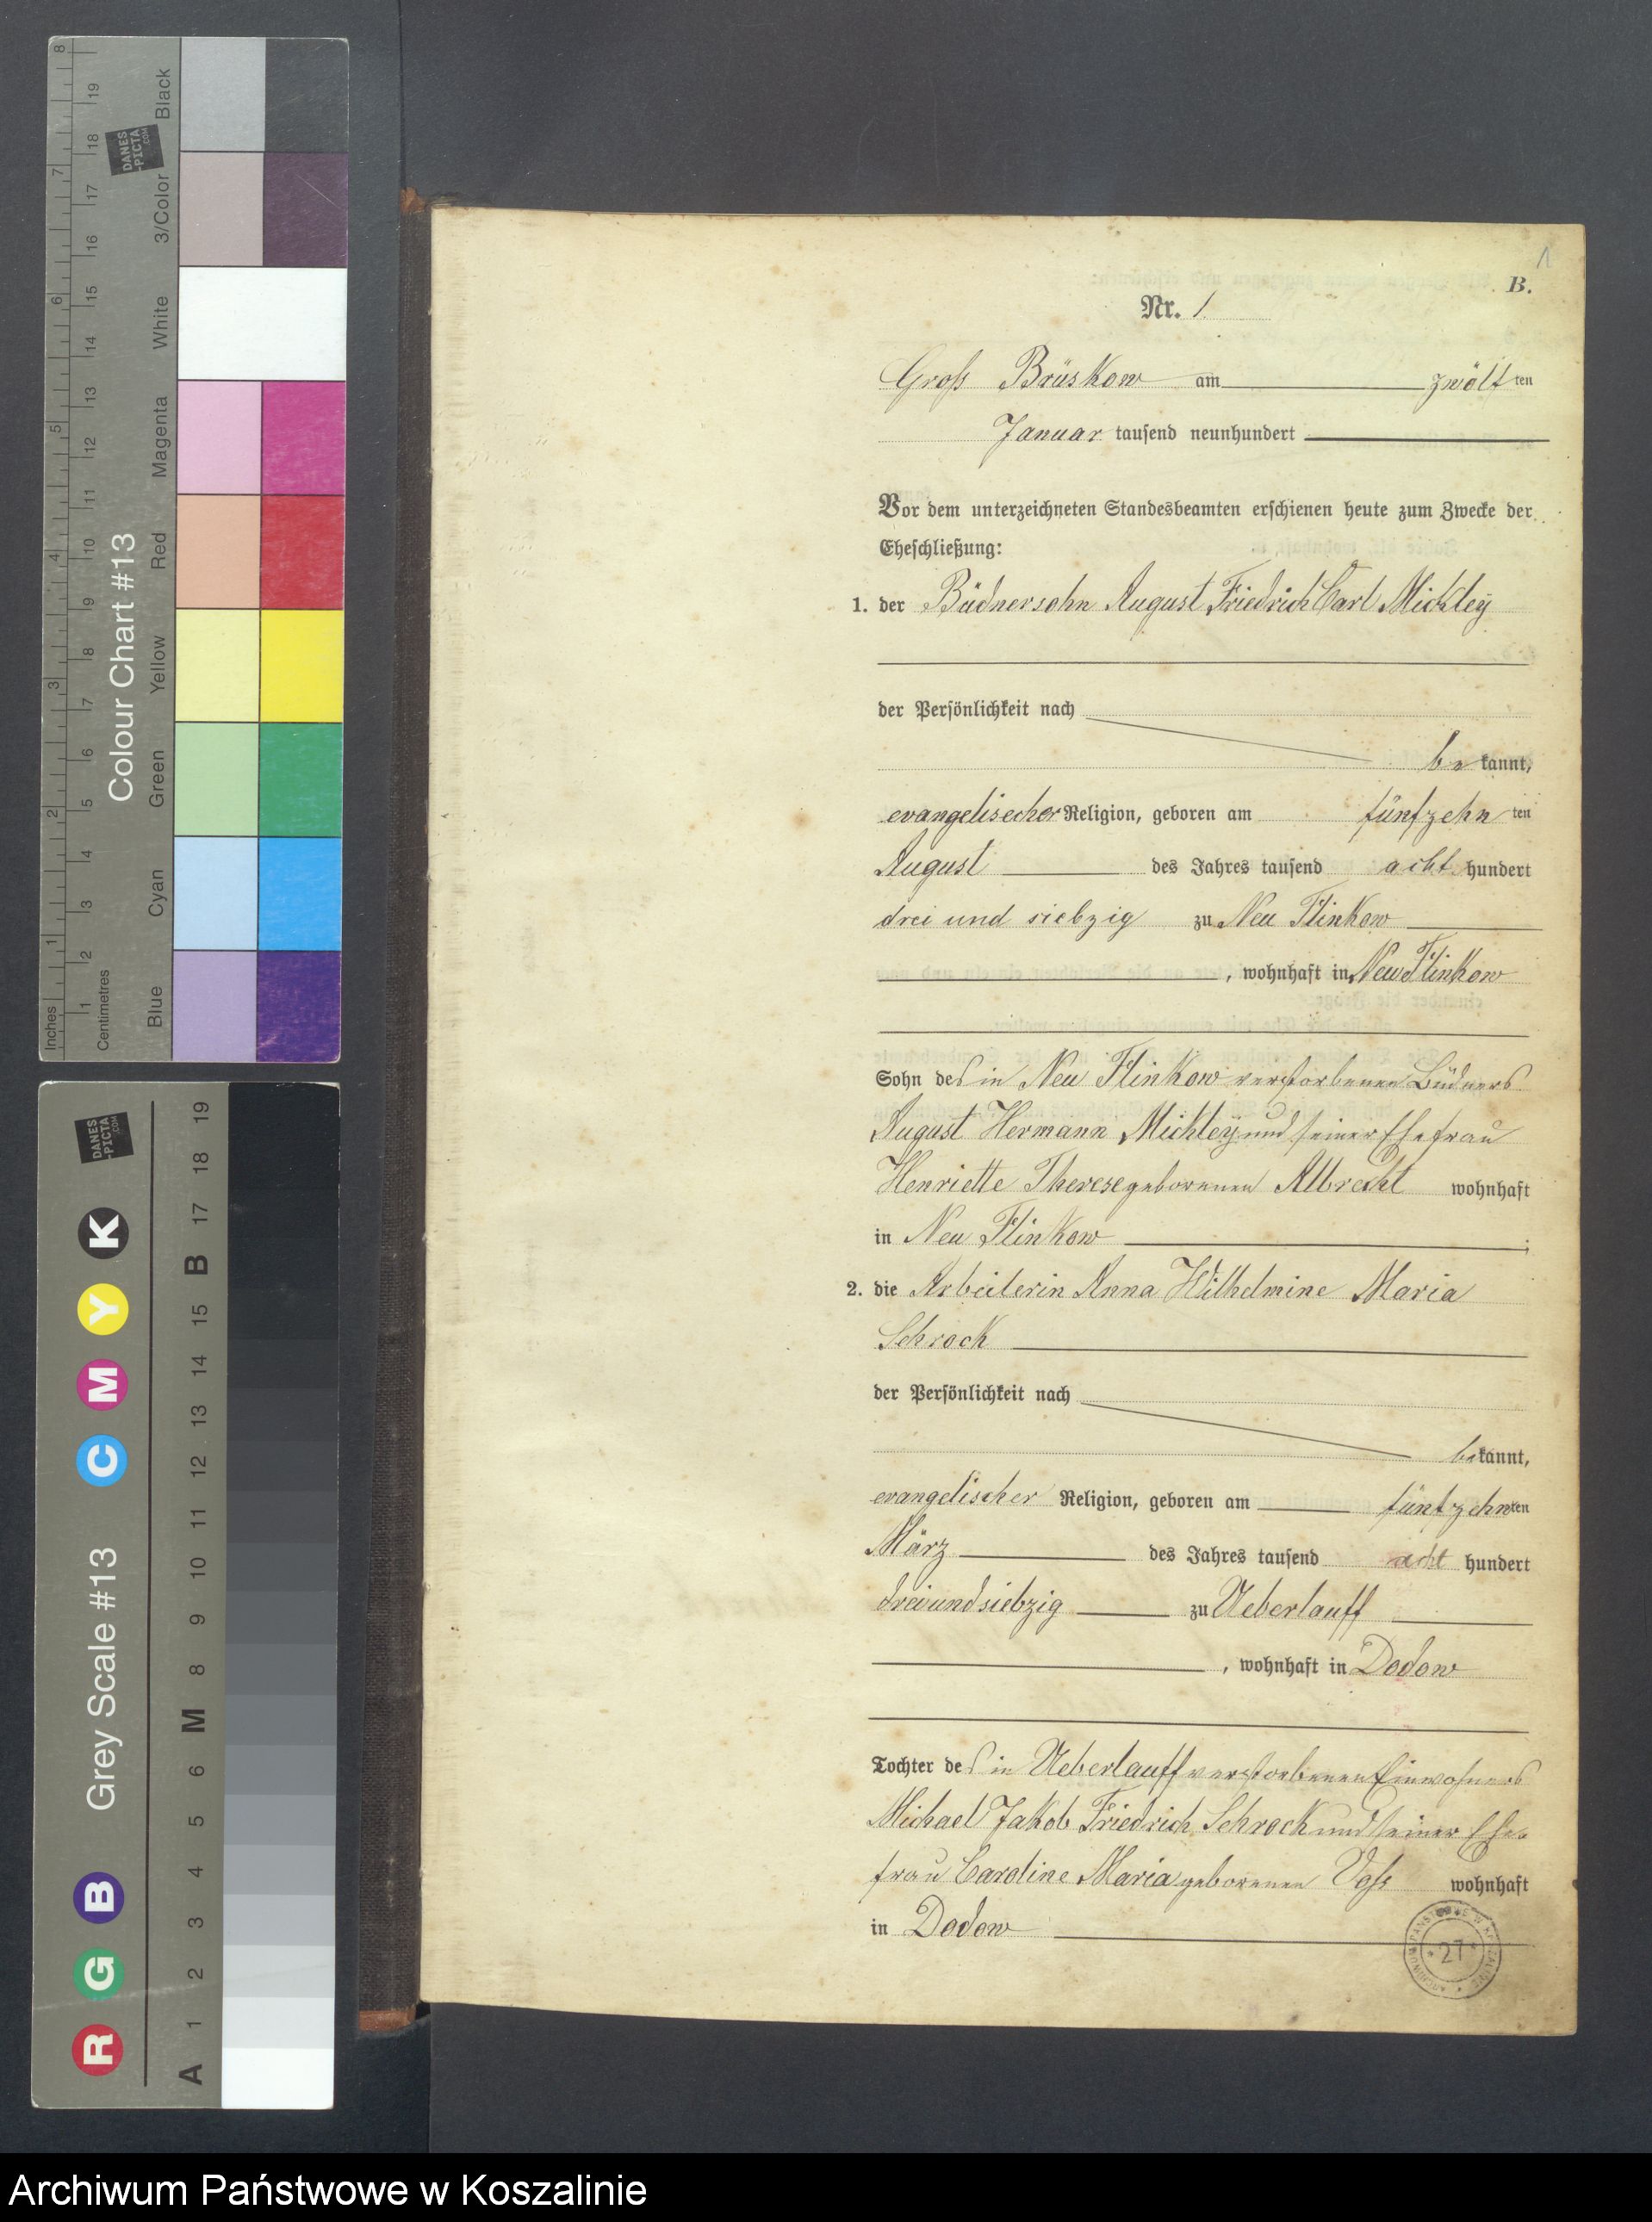 1
B.
Nr. 1
Groß Brüskow am zwölften
Januar tausend neunhundert
Vor dem unterzeichneten Standesbeamten erschienen heute zum Zwecke der
Eheschließung:
1. der Büdnersohn August Friedrich Carl Mickley
der Persönlichkeit nach
bekannt,
evangelischer Religion, geboren am fünfzehnten
August des Jahres tausend achthundert
drei und siebzig zu Neu Flinkow
, wohnhaft in Neu Flinkow
Sohn des in Neu Flinkow verstorbenen Büdners
August Hermann Mickley und seiner Ehefrau
Henriette Therese geborenen Albrecht wohnhaft
in Neu Flinkow ;
2. die Arbeiterin Anna Wilhelmine Maria
Schrock
der Persönlichkeit nach
bekannt,
evangelischer Religion, geboren am fünfzehnten
März des Jahres tausend acht hundert
dreiundsiebzig zu Ueberlauff
, wohnhaft in Dodow
Tochter des in Ueberlauff verstorbenen Einwohners
Michael Jakob Friedrich Schrock und seiner Ehe-
frau Caroline Maria geborenen Voß wohnhaft
in Dodow
ARCHIWUM PAŃSTWOWE W KOSZALINIE
* 27 *
Colour Chart #13
Inches 1 2 3 4 5 6 7 8
Centimetres 1 2 3 4 5 6 7 8 9 10 11 12 13 14 15 16 17 18 19
Blue Cyan Green Yellow Red Magenta White 3/Color Black
DANES
-PICTA
.COM
Grey Scale #13
R G B C M Y K
A 1 2 3 4 5 6 M 8 9 10 11 12 13 14 15 B 17 18 19
DANES
-PICTA
.COM
Archiwum Państwowe w Koszalinie